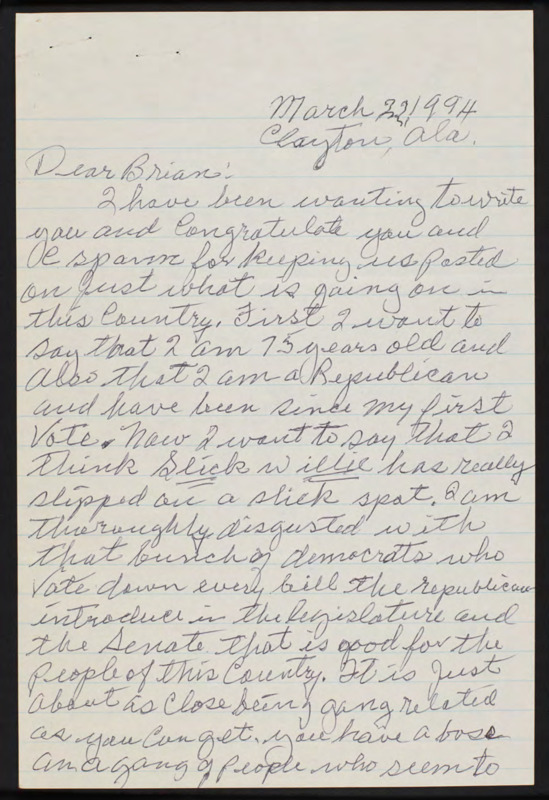 March 22, 1994
Clayton, Ala.
Dear Brian:
I have been wanting to write
you and Congratulate you and
C spann for keeping us Posted
on just what is going on in
this Country. First I want to
say that I am 75 years old and
Also that I am a Republican
and have been since my first
Vote. Now I want to say that I
think Slick willie has really
slipped on a slick spot. I am
thoroughly disgusted with
that bunch of democrats who
Vote down every bill the republican
introduce in the legislature and
the Senate that is good for the
People of this Country. It is Just
About as Close being gang related
as you Can get. you have a boss
and a gang of People who seem to